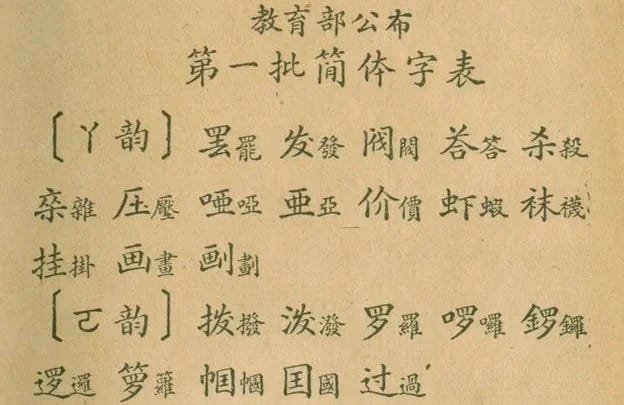 教育部公布
第一批简体字表
〔ㄚ韵〕 罢罷 发發 阀閥 荅答 杀殺
杂雜 压壓 唖啞 亜亞 价價 虾蝦 袜襪
挂掛 画畫 㓰劃
〔ㄛ韵〕 拨撥 泼潑 罗羅 啰囉 锣鑼
逻邏 箩籮 帼幗 囯國 过過